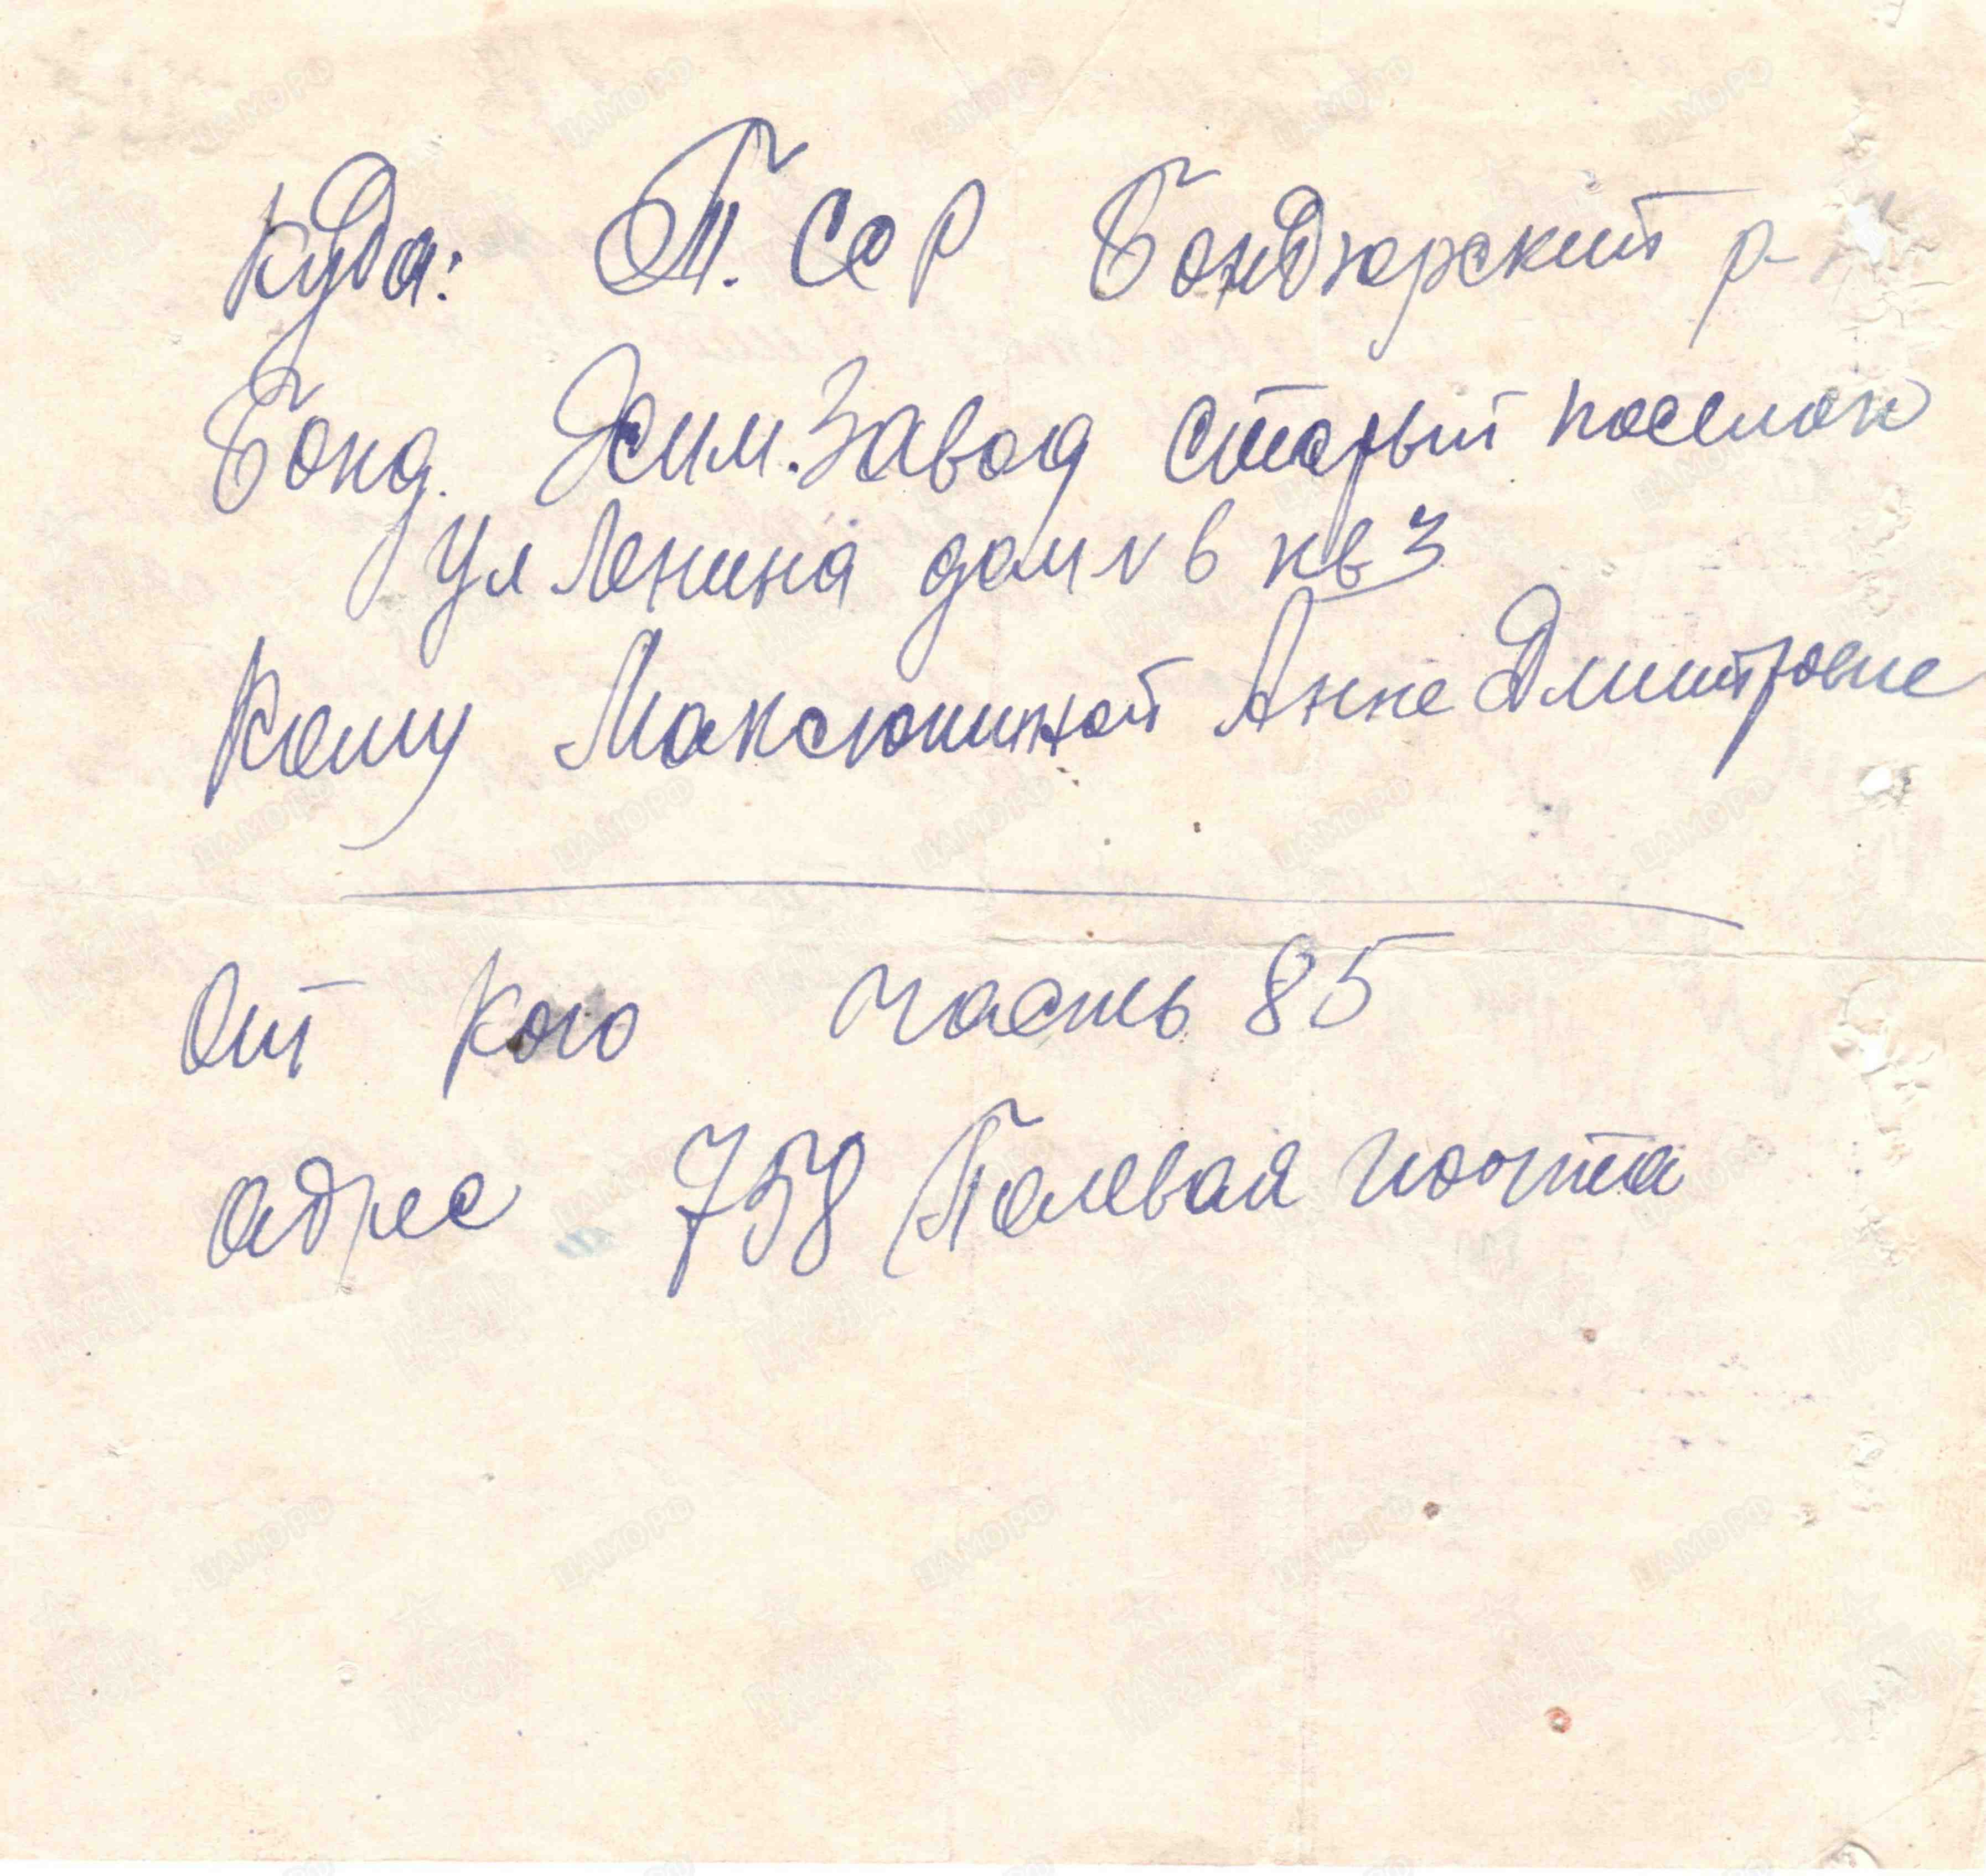 Куда: Т. ССР Бондюжский р-
Бонд. Хим. Завод старый поселок
ул Ленина дом № 6 кв 3
Кому Максюшиной Анне Дмитровне
От кого часть 85
адрес 758 Полевая почта